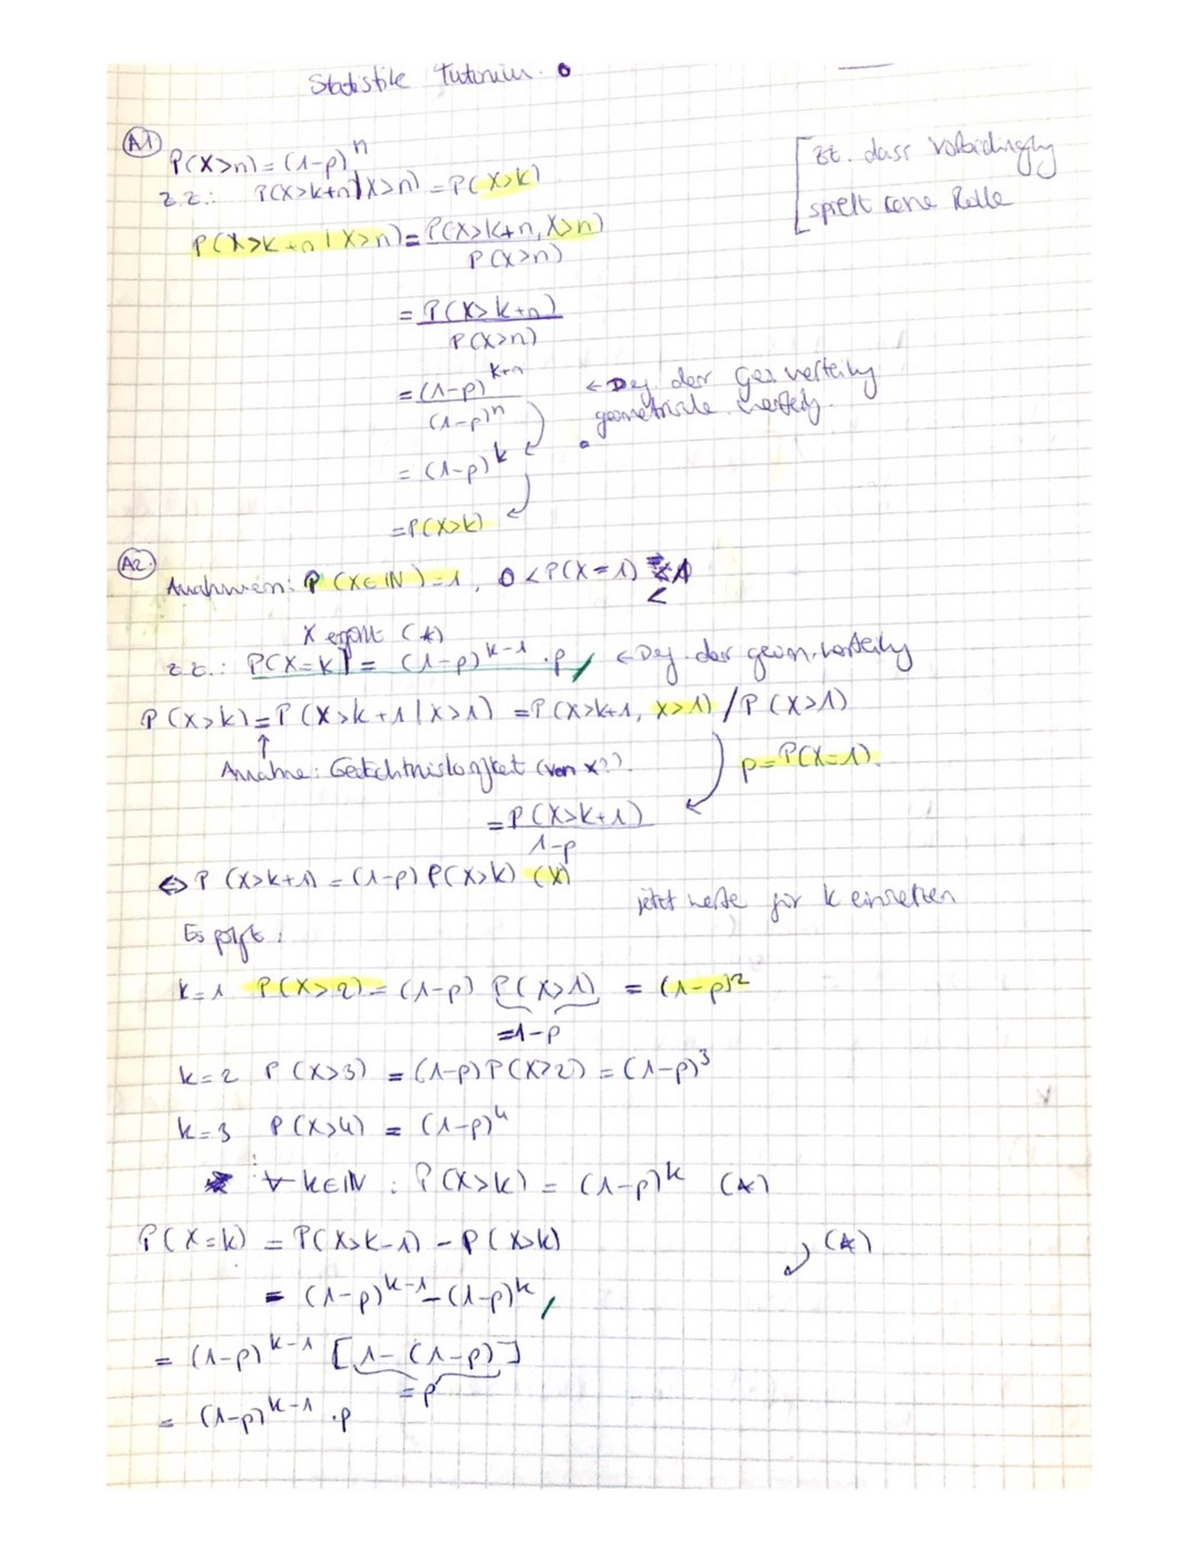 Statistik Tutorium
A1
P(X>n) = (1-p)^n
z.z.: P(X>k+n|X>n) = P(X>k)
[zt. dass Vorbedingung
spielt keine Rolle
P(X>k+n|X>n) = P(X>k+n, X>n)
P(X>n)
= P(X>k+n)
P(X>n)
= (1-p)^k+n
(1-p)^n
← Def. der Geo. verteilung
geometrische verteilg.
= (1-p)^k
= P(X>k)
A2.
Annahmen: P(X∈ℕ)=1, 0<P(X=1)<1
X erfüllt (*)
z.z.: P(X=k) = (1-p)^k-1 ·p ← Def. der geom. Verteilung
P(X>k) = P(X>k+1|X>1) = P(X>k+1, X>1) / P(X>1)
↑
Annahme: Gedächtnislosigkeit (von X??)
p=P(X=1).
= P(X>k+1)
1-p
⇔ P(X>k+1) = (1-p) P(X>k) (X)
jetzt werte für k einsetzen
Es folgt:
k=1 P(X>2) = (1-p) P(X>1) = (1-p)^2
=1-p
k=2 P(X>3) = (1-p)P(X>2) = (1-p)^3
k=3 P(X>4) = (1-p)^4
⋮
∀ k∈ℕ : P(X>k) = (1-p)^k (*)
P(X=k) = P(X>k-1) - P(X>k)
(*)
= (1-p)^k-1 - (1-p)^k
= (1-p)^k-1 [1-(1-p)]
=p
= (1-p)^k-1 ·p